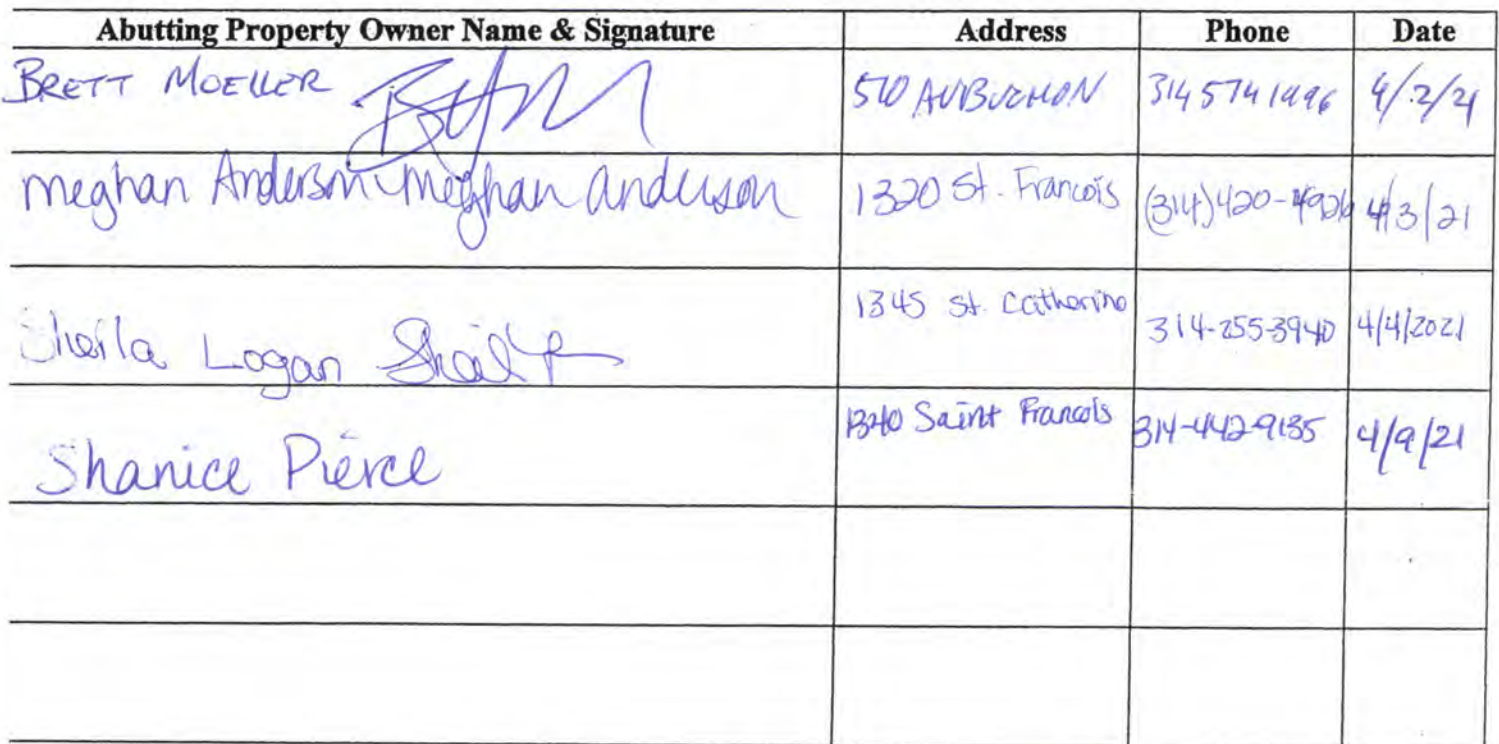 Abutting Property Owner Name & Signature Address Phone Date
BRETT MOELLER 510 AUBUCHON 314 574 1996 4/2/21
meghan Anderson meghan anderson 1320 St. Francois (314)420-4926 4/3/21
Sheila Logan 1345 St. Catherine 314-255-3940 4/4/2021
Shanice Pierce 1340 Saint Francois 314-442-9135 4/9/21